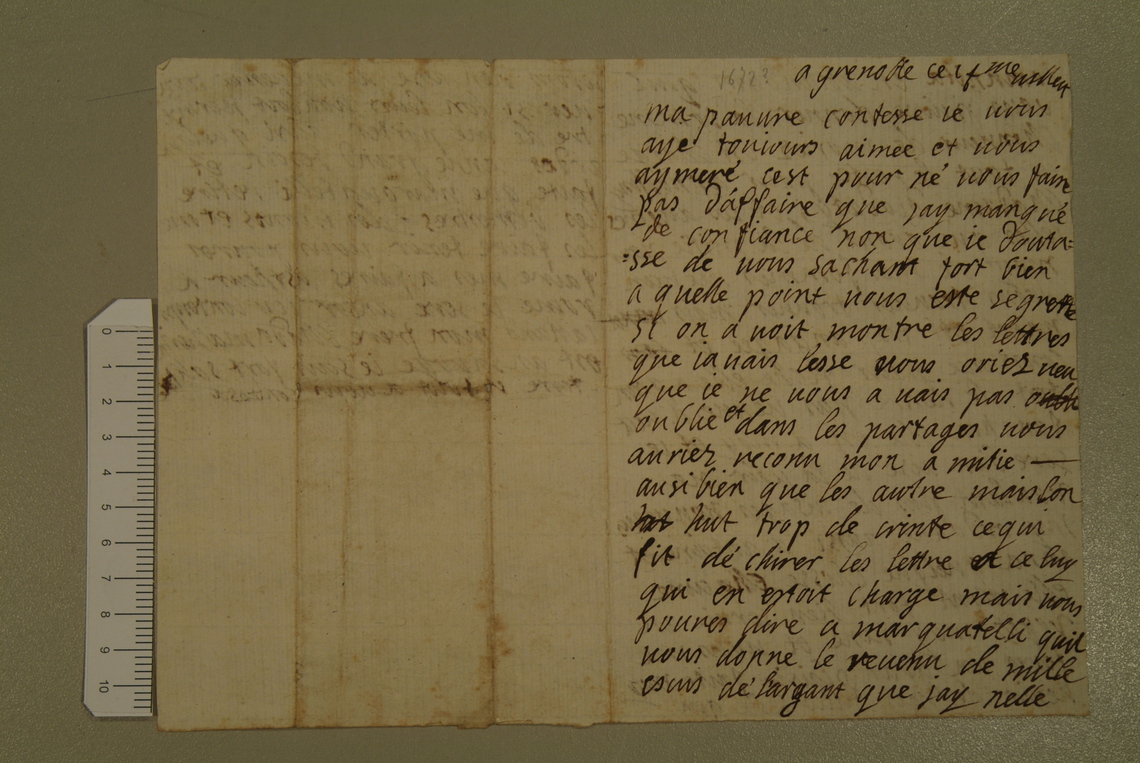 a grenoble ce
1672?
ma pauure contesse ie uous
aye touiours aimee et uous
aymeré cest pour né uous faire
pas dáffaire que jay manqué
de confiance non que ie douta=
=sse de uous sachant fort bien
a quelle point uous este segrette
si on a uoit montre les lettres
que iauais lesse uous oriez ueu
que ie ne uous a uais pas oublie
oublie et dans les partages uous
auriez reconu mon a mitie —
ausi bien que les autre mais lon
hut trop de crinte ce qui
fit dé chirer les lettre et ce luy
qui en estoit charge mais uous
poures dire a marquatelli quil
uous donne le reuenu de mille
escus dé largant que jay nelle